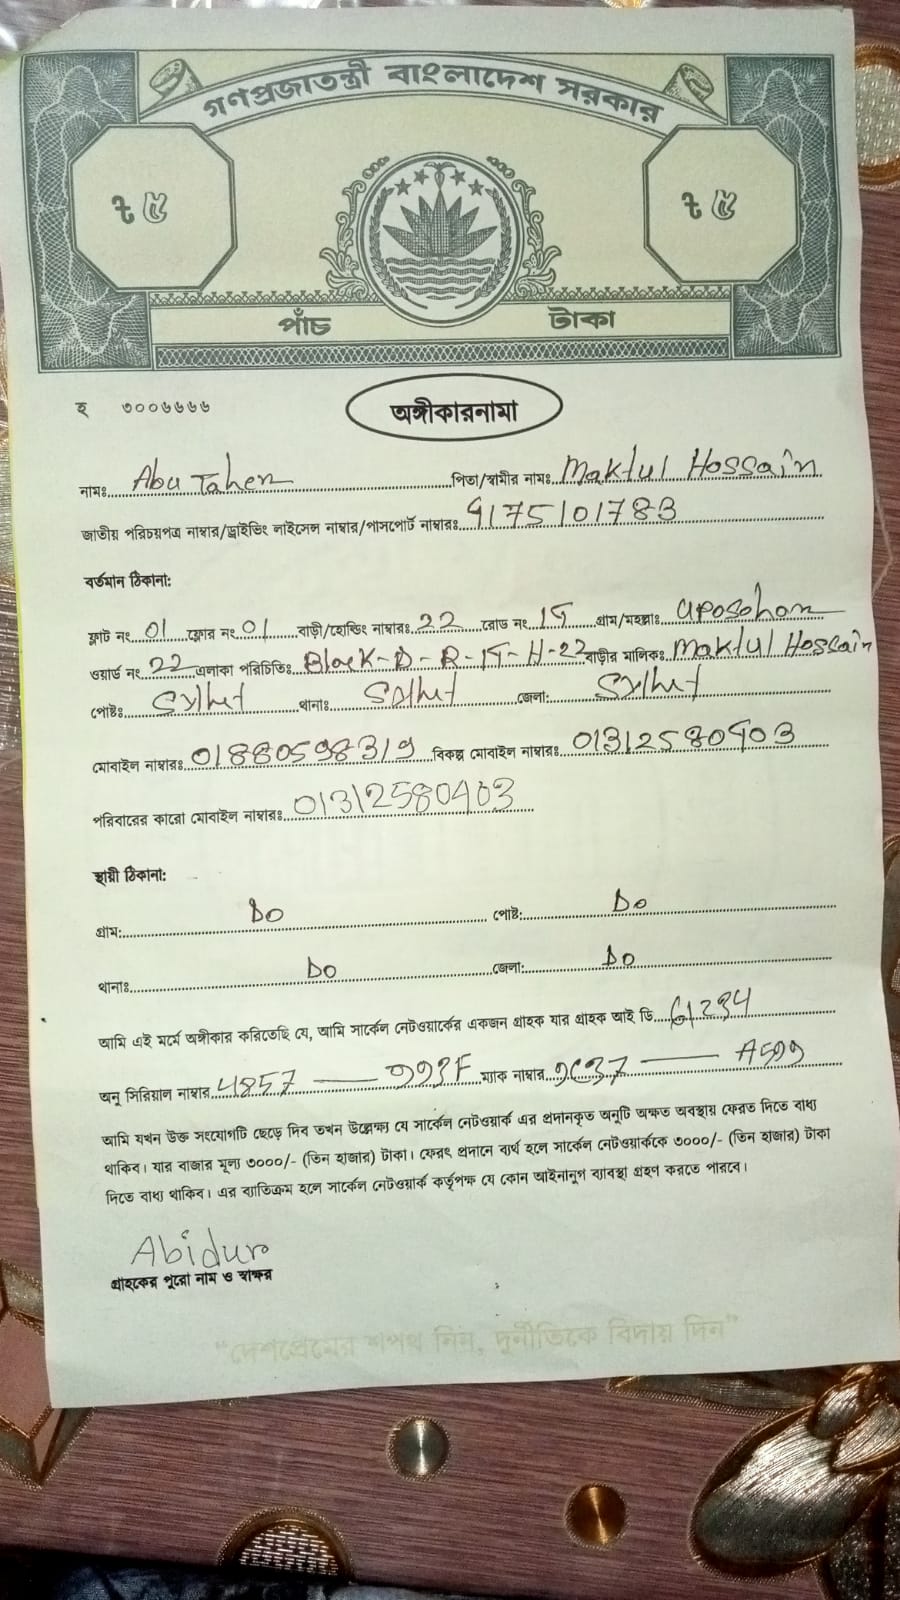 গণপ্রজাতন্ত্রী বাংলাদেশ সরকার
৳ ৫ ৳ ৫
পাঁচ টাকা
হ ৩০০৬৬৬৬
অঙ্গীকারনামা
নামঃ Abu Taher পিতা/স্বামীর নামঃ Maktul Hossain
জাতীয় পরিচয়পত্র নাম্বার/ড্রাইভিং লাইসেন্স নাম্বার/পাসপোর্ট নাম্বারঃ 9175101783
বর্তমান ঠিকানা:
ফ্লাট নং 01 ফ্লোর নং 01 বাড়ী/হোল্ডিং নাম্বারঃ 22 রোড নং গ্রাম/মহল্লাঃ Uposohor
ওয়ার্ড নং 22 এলাকা পরিচিতিঃ Block-D-R- H-22 বাড়ীর মালিকঃ Maktul Hossain
পোষ্টঃ Sylhet থানাঃ Sylhet জেলা: Sylhet
মোবাইল নাম্বারঃ 01880598319 বিকল্প মোবাইল নাম্বারঃ 01312580903
পরিবারের কারো মোবাইল নাম্বারঃ 01312580903
স্থায়ী ঠিকানা:
গ্রাম: Do পোষ্ট: Do
থানাঃ Do জেলা: Do
আমি এই মর্মে অঙ্গীকার করিতেছি যে, আমি সার্কেল নেটওয়ার্কের একজন গ্রাহক যার গ্রাহক আই ডি 61294
অনু সিরিয়াল নাম্বার 4857 — 993F ম্যাক নাম্বার 9C37 — A599
আমি যখন উক্ত সংযোগটি ছেড়ে দিব তখন উল্লেক্ষ্য যে সার্কেল নেটওয়ার্ক এর প্রদানকৃত অনুটি অক্ষত অবস্থায় ফেরত দিতে বাধ্য
থাকিব। যার বাজার মূল্য ৩০০০/- (তিন হাজার) টাকা। ফেরৎ প্রদানে ব্যর্থ হলে সার্কেল নেটওয়ার্ককে ৩০০০/- (তিন হাজার) টাকা
দিতে বাধ্য থাকিব। এর ব্যতিক্রম হলে সার্কেল নেটওয়ার্ক কর্তৃপক্ষ যে কোন আইনানুগ ব্যবস্থা গ্রহণ করতে পারবে।
Abidur
গ্রাহকের পুরো নাম ও স্বাক্ষর
"দেশপ্রেমের শপথ নিন, দুর্নীতিকে বিদায় দিন"